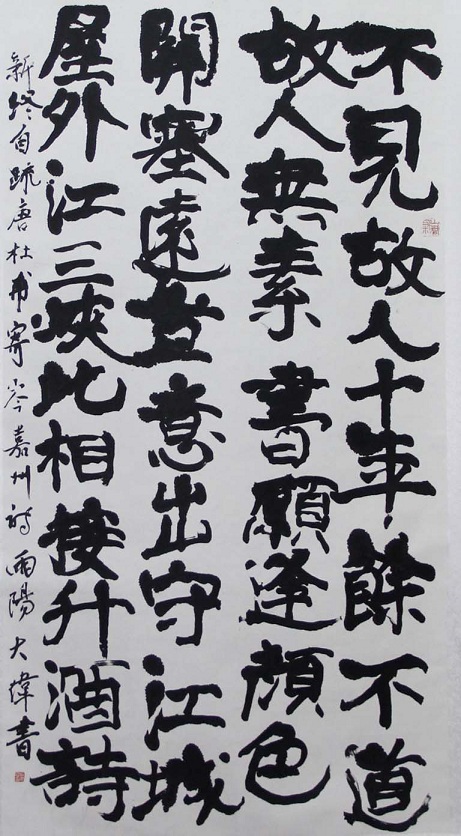 不見故人十年餘不道
故人無素書願逢顏色
關塞遠豈意出守江城
屋外江三峽此相接升酒詩
新終自疏唐杜甫寄岑嘉州詩雨陽大緯書